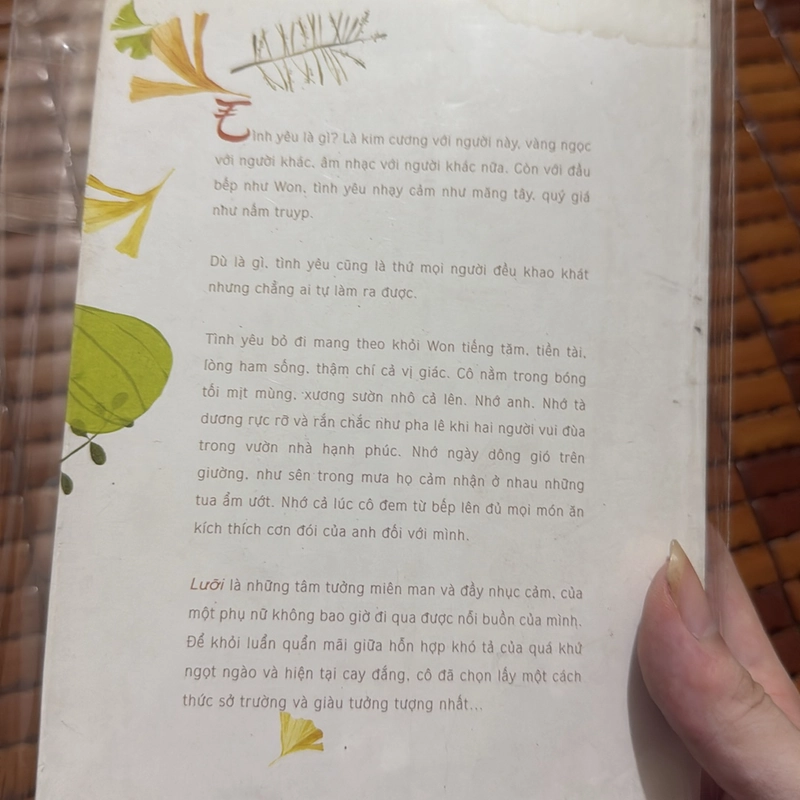 Tình yêu là gì? Là kim cương với người này, vàng ngọc
với người khác, âm nhạc với người khác nữa. Còn với đầu
bếp như Won, tình yêu nhạy cảm như măng tây, quý giá
như nấm truyp.
Dù là gì, tình yêu cũng là thứ mọi người đều khao khát
nhưng chẳng ai tự làm ra được.
Tình yêu bỏ đi mang theo khỏi Won tiếng tăm, tiền tài,
lòng ham sống, thậm chí cả vị giác. Cô nằm trong bóng
tối mịt mùng, xương sườn nhô cả lên. Nhớ anh. Nhớ tà
dương rực rỡ và rắn chắc như pha lê khi hai người vui đùa
trong vườn nhà hạnh phúc. Nhớ ngày dông gió trên
giường, như sên trong mưa họ cảm nhận ở nhau những
tua ẩm ướt. Nhớ cả lúc cô đem từ bếp lên đủ mọi món ăn
kích thích cơn đói của anh đối với mình.
Lưỡi là những tâm tưởng miên man và đầy nhục cảm, của
một phụ nữ không bao giờ đi qua được nỗi buồn của mình.
Để khỏi luẩn quẩn mãi giữa hỗn hợp khó tả của quá khứ
ngọt ngào và hiện tại cay đắng, cô đã chọn lấy một cách
thức sở trường và giàu tưởng tượng nhất...